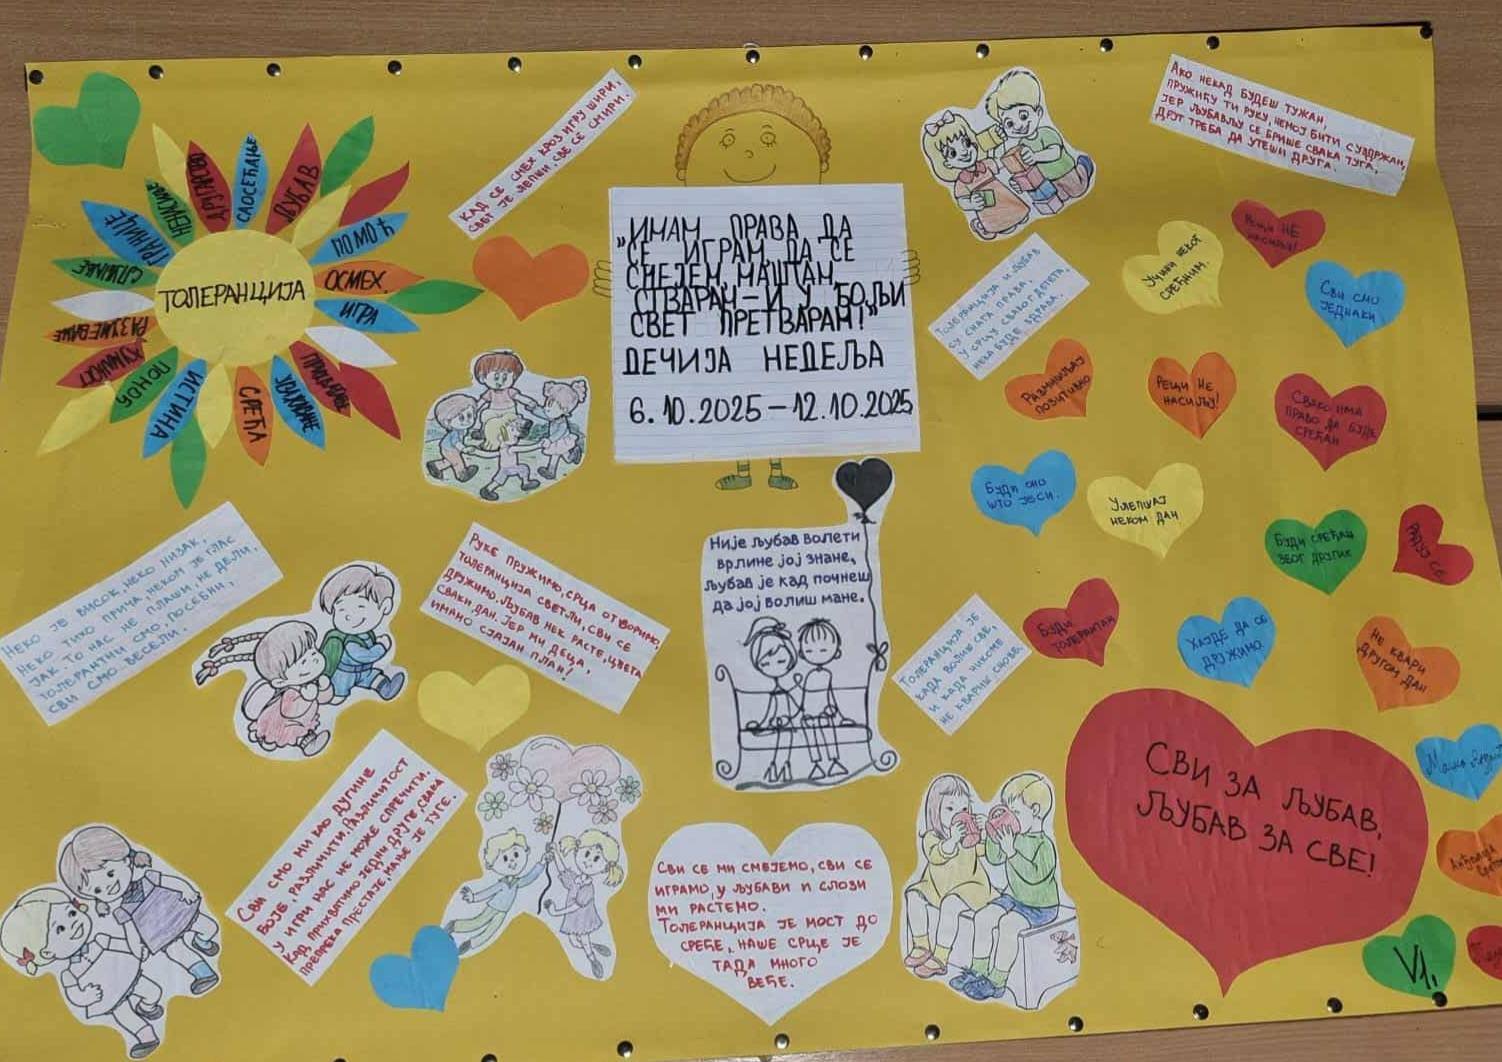 КАД СЕ СМЕХ КРОЗ ИГРУ ШИРИ,
СВЕТ ЈЕ ЛЕПШИ, СВЕ СЕ СМИРИ.
АКО НЕКАД БУДЕШ ТУЖАН,
ПРУЖИЋУ ТИ РУКУ, НЕМОЈ БИТИ СУЗДРЖАН,
ЈЕР ЉУБАВЉУ СЕ БРИШЕ СВАКА ТУГА,
ДРУГ ТРЕБА ДА УТЕШИ ДРУГА.
ТОЛЕРАНЦИЈА
ДРУГАРСТВО
САОСЕЋАЊЕ
ЉУБАВ
ПОМОЋ
ОСМЕХ
ИГРА
УВАЖАВАЊЕ
СРЕЋА
ИСТИНА
ПОНОС
ХУМАНОСТ
РАЗУМЕВАЊЕ
СЛУШАЊЕ
ГРАНИЦЕ
НЕНАСИЉЕ
„ИМАМ ПРАВА ДА
СЕ ИГРАМ, ДА СЕ
СМЕЈЕМ, МАШТАМ,
СТВАРАМ – И У БОЉИ
СВЕТ ПРЕТВАРАМ!”
ДЕЧИЈА НЕДЕЉА
6.10.2025 – 12.10.2025
ТОЛЕРАНЦИЈА И ЉУБАВ
СУ СНАГА ПРАВА,
У СРЦУ СВАКОГ ДЕТЕТА,
НЕКА БУДЕ ЗДРАВА.
УЧИНИ НЕКОГ
СРЕЋНИМ.
РЕЦИ НЕ
НАСИЉУ!
СВИ СМО
ЈЕДНАКИ
РАЗМИШЉАЈ
ПОЗИТИВНО
РЕЦИ НЕ
НАСИЉУ!
СВАКО ИМА
ПРАВО ДА БУДЕ
СРЕЋАН
БУДИ ОНО
ШТО ЈЕСИ.
УЛЕПШАЈ
НЕКОМ ДАН
БУДИ СРЕЋАН
ЗБОГ ДРУГИХ
РАДУЈ СЕ
НЕКО ЈЕ ВИСОК, НЕКО НИЗАК,
НЕКО ТИХО ПРИЧА, НЕКОМ ЈЕ ГЛАС
ЈАК. ТО НАС НЕ ПЛАШИ, НЕ ДЕЛИ,
ТОЛЕРАНТНИ СМО, ПОСЕБНИ,
СВИ СМО ВЕСЕЛИ.
РУКЕ ПРУЖИМО, СРЦА ОТВОРИМО,
ТОЛЕРАНЦИЈА СВЕТЛИ, СВИ СЕ
ДРУЖИМО. ЉУБАВ НЕК РАСТЕ, ЦВЕТА
СВАКИ ДАН, ЈЕР МИ ДЕЦА,
ИМАМО СЈАЈАН ПЛАН!
Није љубав волети
врлине јој знане,
љубав је кад почнеш
да јој волиш мане.
ТОЛЕРАНЦИЈА ЈЕ
КАДА ВОЛИШ СВЕ,
И КАДА НИКОМЕ
НЕ КВАРИШ СНОВЕ.
БУДИ
ТОЛЕРАНТАН
ХАЈДЕ ДА СЕ
ДРУЖИМО
НЕ КВАРИ
ДРУГОМ ДАН
СВИ СМО МИ КАО ДУГИНЕ
БОЈЕ, РАЗЛИЧИТИ. РАЗЛИЧИТОСТ
У ИГРИ НАС НЕ МОЖЕ СПРЕЧИТИ.
КАД ПРИХВАТИМО ЈЕДНИ ДРУГЕ, СВАКА
ПРЕПРЕКА ПРЕСТАЈЕ, МАЊЕ ЈЕ ТУГЕ.
СВИ СЕ МИ СМЕЈЕМО, СВИ СЕ
ИГРАМО, У ЉУБАВИ И СЛОЗИ
МИ РАСТЕМО.
ТОЛЕРАНЦИЈА ЈЕ МОСТ ДО
СРЕЋЕ, НАШЕ СРЦЕ ЈЕ
ТАДА МНОГО
ВЕЋЕ.
СВИ ЗА ЉУБАВ,
ЉУБАВ ЗА СВЕ!
VI1